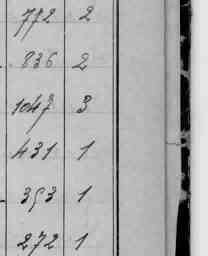 772 2
836 2
1047 3
431 1
353 1
272 1